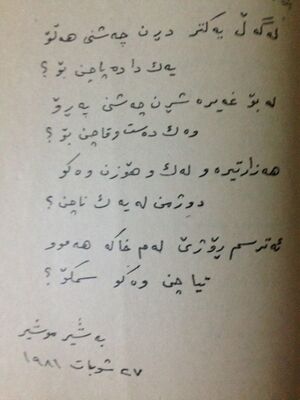 لەگەڵ یەکتر دڕن چەشنی هەڵۆ
یەك دادەپاچن بۆ؟
لە بۆ غەیرە شڕن چەشنی پەڕۆ
وەك دەست و قاچن بۆ؟
هەزار تیرە و لەك و هۆزن وەکو
دوژمن لەیەك ناچن؟
ئەترسم ڕۆژێ لەم خاکە هەموو
تیاچن وەکو سمکۆ؟
بەشیر موشیر
٢٧ شوبات ١٩٨١